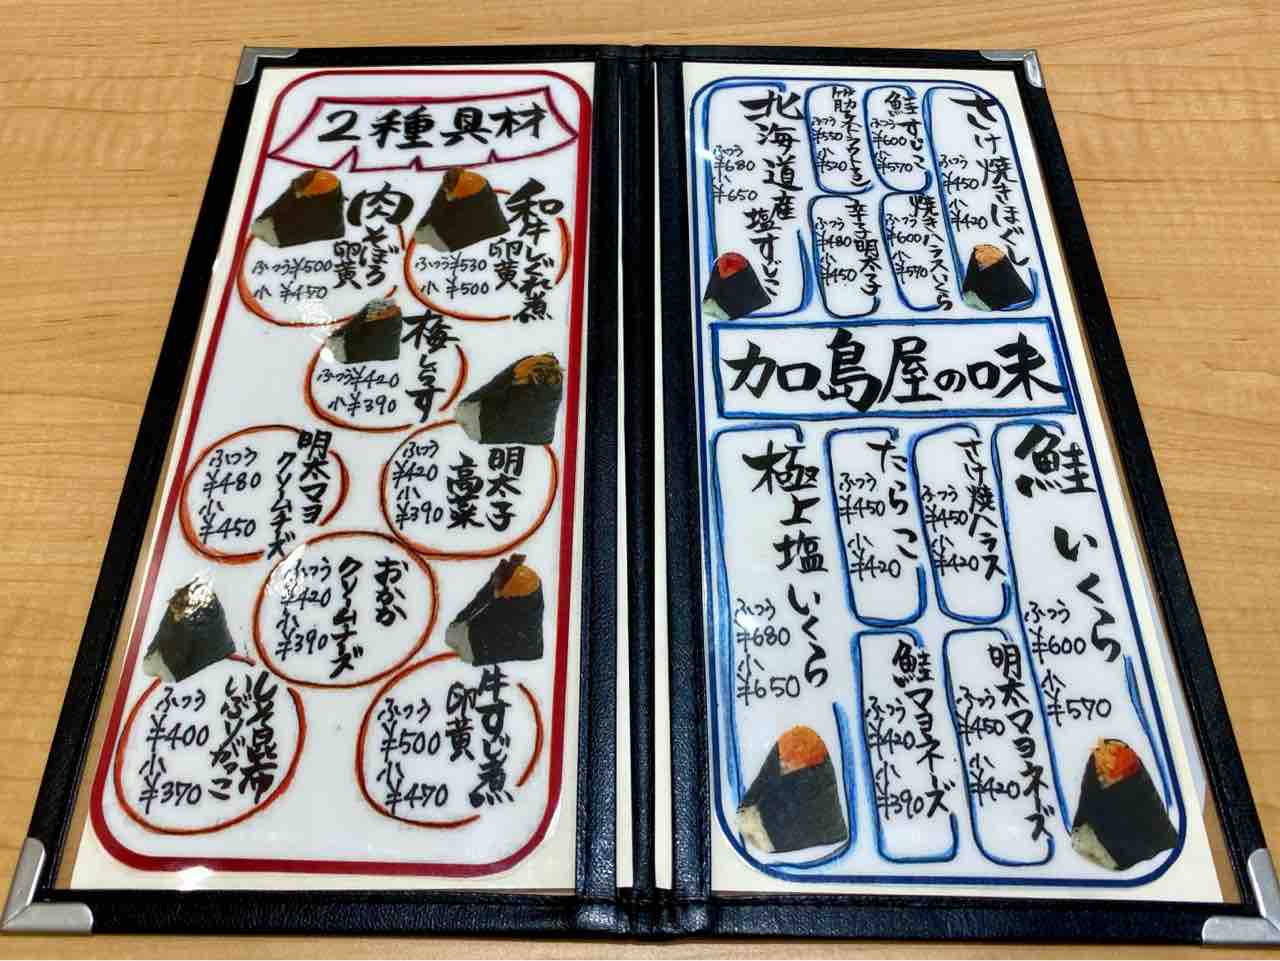 2種具材
和牛しぐれ煮
卵黄
ふつう¥530
小 ¥500
肉そぼろ
卵黄
ふつう¥500
小 ¥450
梅しらす
ふつう¥420
小¥390
明太子
高菜
ふつう
¥420
小
¥390
明太マヨ
クリームチーズ
ふつう
¥480
小
¥450
おかか
クリームチーズ
ふつう
¥420
小
¥390
牛すじ煮
卵黄
ふつう
¥500
小
¥470
しそ昆布
いぶりがっこ
ふつう
¥400
小
¥370
さけ焼きほぐし
ふつう
¥450
小
¥420
鮭すじこ
ふつう
¥600
小
¥570
ふつう
¥550
小
¥520
北海道産
塩すじこ
ふつう
¥680
小
¥650
焼きハラスいくら
ふつう
¥600
小
¥570
辛子明太子
ふつう
¥480
小
¥450
加島屋の味
鮭 いくら
ふつう
¥600
小
¥570
さけ焼ハラス
ふつう
¥450
小
¥420
たらこ
ふつう
¥450
小
¥420
極上塩いくら
ふつう
¥680
小
¥650
明太マヨネーズ
ふつう
¥450
小
¥420
鮭マヨネーズ
ふつう
¥420
小
¥390